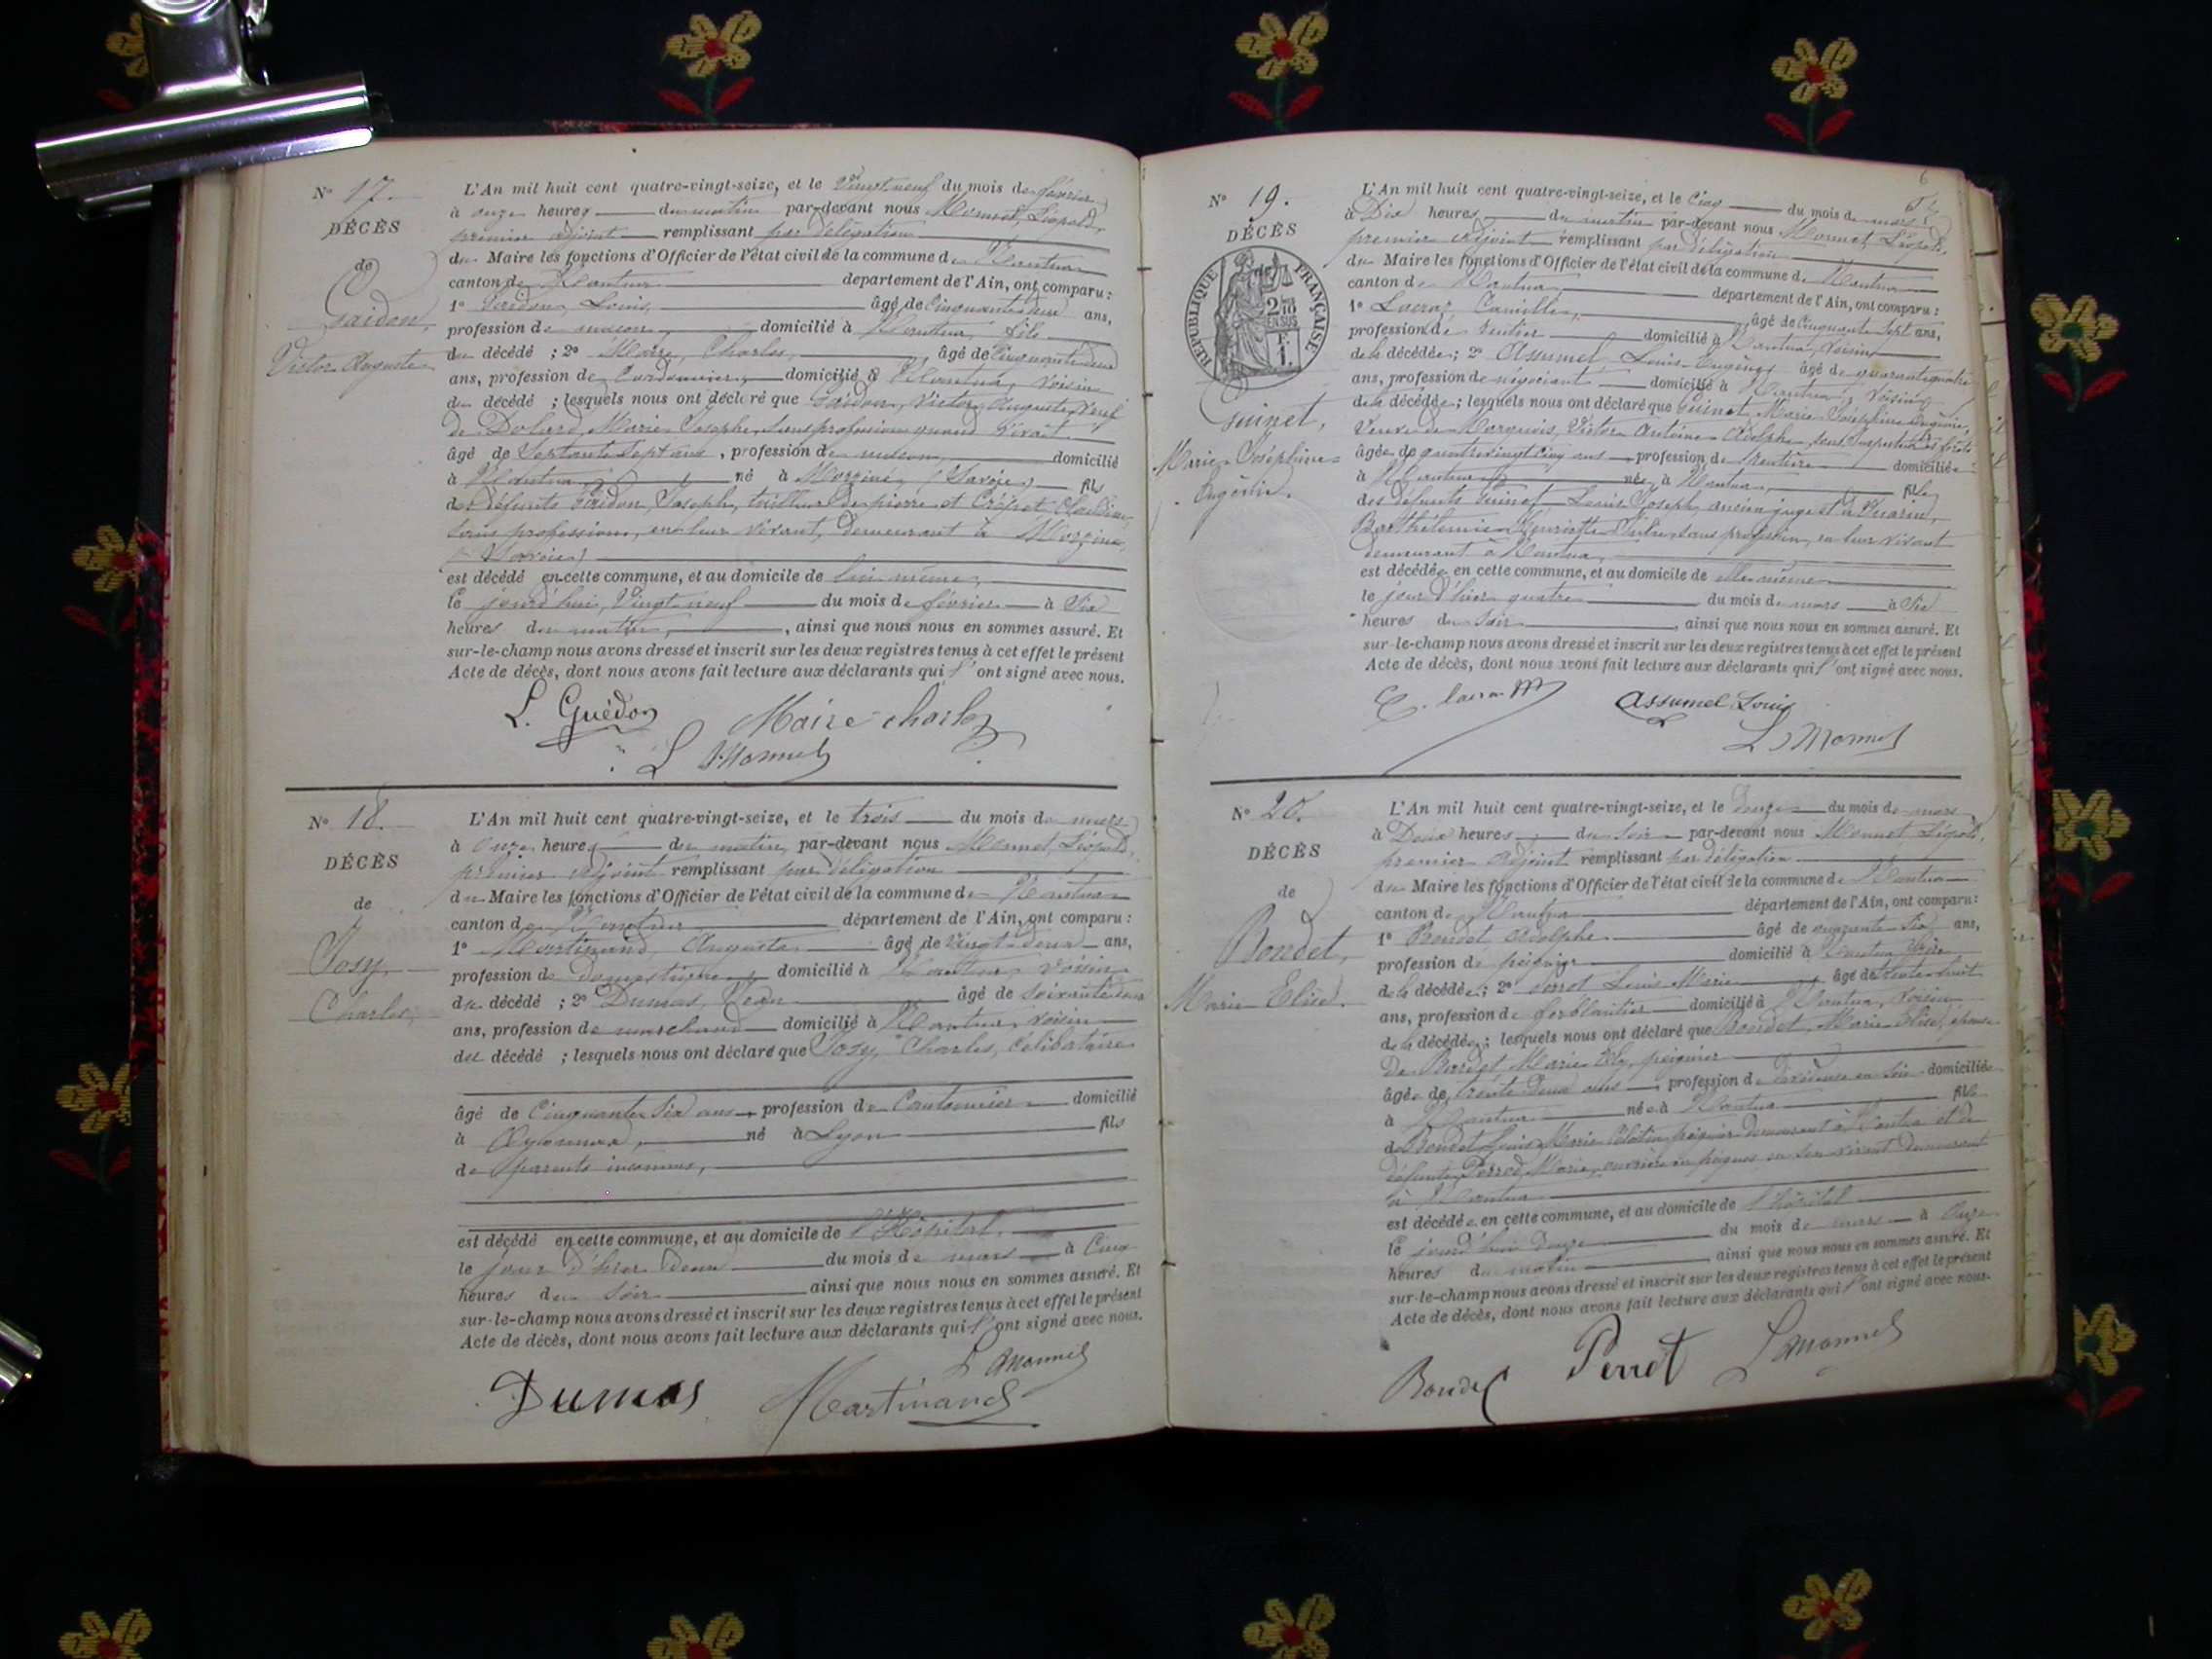 N° 17.
DÉCÈS
de
Gaidon,
Victor Auguste
L'An mil huit cent quatre-vingt-seize, et le Vingt neuf du mois de février
à onze heures du matin par-devant nous Monnet, Léopold,
premier adjoint remplissant par délégation
du Maire les fonctions d'Officier de l'état civil de la commune de Nantua
canton de Nantua département de l'Ain, ont comparu :
1° Louis, âgé de Cinquante deux ans,
profession de maçon, domicilié à Nantua, fils
du décédé ; 2° Maire, Charles, âgé de Cinquante deux
ans, profession de Cordonnier, domicilié à Nantua, voisin
du décédé ; lesquels nous ont déclaré que Gaidon, Victor Auguste, Veuf
de Marie Josephe, sans profession quand vivait
âgé de Septante Sept ans, profession de maçon, domicilié
à Nantua né à Morzine, (Savoie) fils
de défunts Gaidon, Joseph, tailleur de pierre et
sans profession, en leur vivant, demeurant à Morzine,
(Savoie)
est décédé en cette commune, et au domicile de lui-même,
le jourd'hui, Vingt neuf du mois de février à Six
heures du matin, ainsi que nous nous en sommes assuré. Et
sur-le-champ nous avons dressé et inscrit sur les deux registres tenus à cet effet le présent
Acte de décès, dont nous avons fait lecture aux déclarants qui l'ont signé avec nous.
L. Guédon Maire charles
L Monnet
N° 18.
DÉCÈS
de
Josy,
Charles,
L'An mil huit cent quatre-vingt-seize, et le trois du mois de mars
à onze heures du matin, par-devant nous Monnet, Léopold,
premier adjoint remplissant par délégation
du Maire les fonctions d'Officier de l'état civil de la commune de Nantua
canton de Nantua département de l'Ain, ont comparu :
1° Martinand, Auguste âgé de Vingt-deux ans,
profession de domestique, domicilié à Nantua, voisin
du décédé ; 2° Dumas, Jean âgé de soixante
ans, profession de marchand domicilié à Nantua, voisin
du décédé ; lesquels nous ont déclaré que Josy, Charles, célibataire
âgé de Cinquante Six ans, profession de Cantonnier domicilié
à Oyonnax, né à Lyon fils
de parents inconnus,
est décédé en cette commune, et au domicile de l'Hôpital,
le jour d'hier deux du mois de mars à Cinq
heures du Soir ainsi que nous nous en sommes assuré. Et
sur-le-champ nous avons dressé et inscrit sur les deux registres tenus à cet effet le présent
Acte de décès, dont nous avons fait lecture aux déclarants qui l'ont signé avec nous.
L Monnet
Dumas Martinand
N° 19.
DÉCÈS
RÉPUBLIQUE FRANÇAISE
2/10 EN SUS
Guinet,
Marie Joséphine
Eugénie.
L'An mil huit cent quatre-vingt-seize, et le Cinq du mois de mars
à Dix heures du matin par-devant nous Monnet, Léopold,
premier adjoint remplissant par délégation
du Maire les fonctions d'Officier de l'état civil de la commune de Nantua
canton de Nantua, département de l'Ain, ont comparu :
1° Lacroix, Camille, âgé de Cinquante Sept ans,
profession de rentier domicilié à Nantua, voisin
de la décédée ; 2° Assumel Louis Eugène, âgé de quarante quatre
ans, profession de négociant domicilié à Nantua, voisin
de la décédée ; lesquels nous ont déclaré que Guinet, Marie Joséphine Eugénie,
Veuve de Marquois, Victor Antoine Adolphe, sous inspecteur des forêts
âgée de quatre vingt cinq ans profession de rentière domiciliée
à Nantua née à Nantua, fille
des défunts Guinet Louis Joseph, ancien juge et
Barthélemie Henriette sans profession, en leur vivant
demeurant à Nantua,
est décédée en cette commune, et au domicile de elle-même
le jour d'hier quatre du mois de mars à Six
heures du Soir, ainsi que nous nous en sommes assuré. Et
sur-le-champ nous avons dressé et inscrit sur les deux registres tenus à cet effet le présent
Acte de décès, dont nous avons fait lecture aux déclarants qui l'ont signé avec nous.
Assumel Louis
L Monnet
N° 20.
DÉCÈS
de
Bondet,
Marie Elise.
L'An mil huit cent quatre-vingt-seize, et le Douze du mois de mars
à Deux heures du Soir par-devant nous Monnet, Léopold,
premier adjoint remplissant par délégation
du Maire les fonctions d'Officier de l'état civil de la commune de Nantua
canton de Nantua département de l'Ain, ont comparu :
1° Bondet Adolphe âgé de quarante Six ans,
profession de peignier domicilié à Nantua
de la décédée ; 2° Perrot Louis Marie âgé de trente huit
ans, profession de ferblantier domicilié à Nantua, voisin
de la décédée ; lesquels nous ont déclaré que Bondet, Marie Elise, épouse
De Marie peignier
âgée de trente deux ans, profession de en soie domiciliée
à Nantua née à Nantua fille
de Bondet Louis Marie peignier demeurant à Nantua et de
défunte Marie, ouvrière en peignes en son vivant demeurant
à Nantua
est décédée en cette commune, et au domicile de l'hôpital
le jourd'hui douze du mois de mars à Onze
heures du matin ainsi que nous nous en sommes assuré. Et
sur-le-champ nous avons dressé et inscrit sur les deux registres tenus à cet effet le présent
Acte de décès, dont nous avons fait lecture aux déclarants qui l'ont signé avec nous.
Bondet Perrot L Monnet